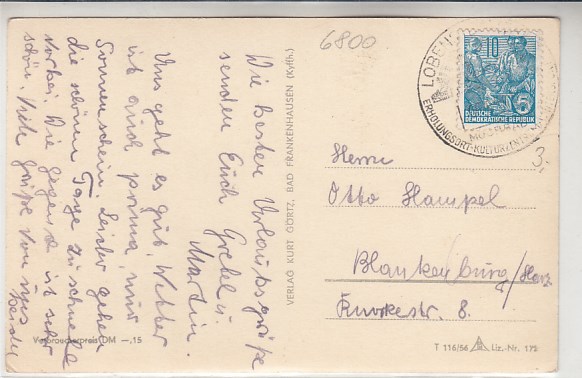 Die besten Urlaubsgrüße
senden Euch Gretel u.
Martin.
Uns geht es gut, Wetter
ist auch prima, nur
Sonnenschein. Leider gehen
die schönen Tage zu schnell
vorbei. Die Gegend ist sehr
schön. Viele Grüße von uns
beiden
Verbraucherpreis DM —,15
VERLAG KURT GÖRTZ, BAD FRANKENHAUSEN (Kyffh.)
6800
LOBEN
ERHOLUNGSORT-KULTURZENTR
10
5
DEUTSCHE
DEMOKRATISCHE REPUBLIK
3,-
Herrn
Otto Hampel
Blankenburg/Harz.
8.
T 116/56 Liz.-Nr. 175